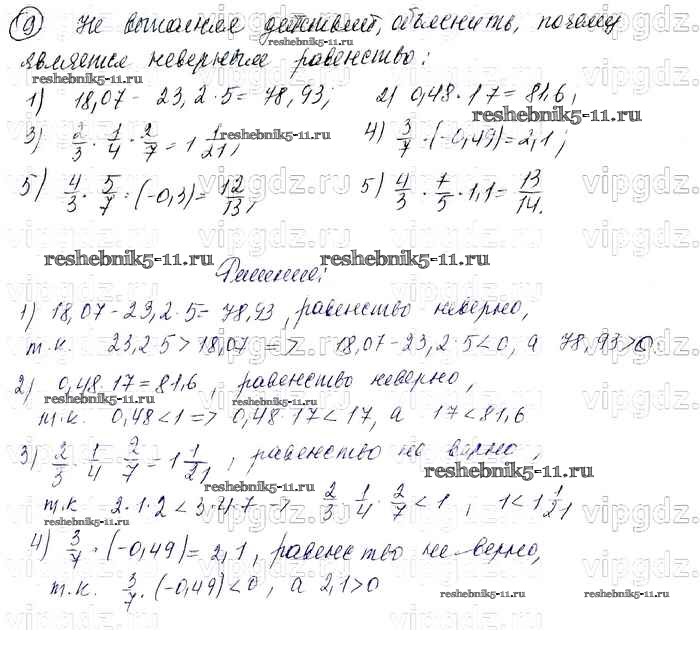 9) Не выполняя действий, объяснить, почему
является неверным равенство:
1) 18,07 - 23,2 · 5 = 78,93; 2) 0,48 · 17 = 81,6;
3) 2/3 · 1/4 · 2/7 = 1 1/21; 4) 3/7 · (-0,49) = 2,1;
5) 4/3 · 5/7 : (-0,3) = 12/13; 5) 4/3 · 1/5 · 1,1 = 13/14.
Решение:
1) 18,07 - 23,2 · 5 = 78,93, равенство неверно,
т.к. 23,2 · 5 > 18,07 => 18,07 - 23,2 · 5 < 0, а 78,93 > 0.
2) 0,48 · 17 = 81,6, равенство неверно,
т.к. 0,48 < 1 => 0,48 · 17 < 17, а 17 < 81,6
3) 2/3 · 1/4 · 2/7 = 1 1/21, равенство не верно,
т.к 2 · 1 · 2 < 3 · 4 · 7 => 2/3 · 1/4 · 2/7 < 1, 1 < 1 1/21
4) 3/7 · (-0,49) = 2,1, равенство не верно,
т.к. 3/7 · (-0,49) < 0, а 2,1 > 0
reshebnik5-11.ru
vipgdz.ru